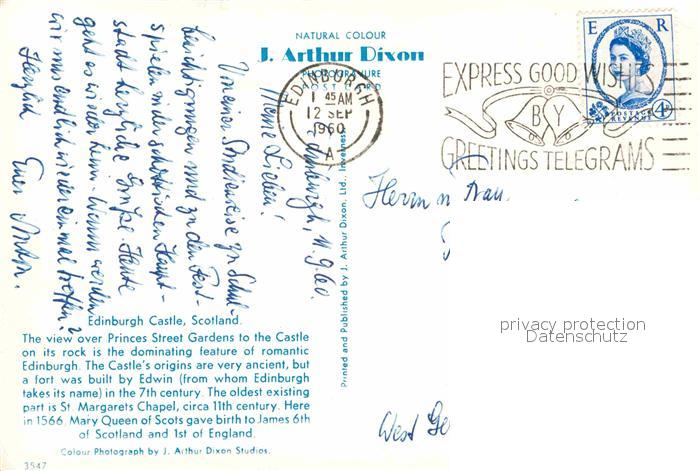 NATURAL COLOUR
J. Arthur Dixon
PHOTOGRAVURE
POST CARD
EDINBURGH
1 45 AM
12 SEP
1960
A
EXPRESS GOOD WISHES
BY
GREETINGS TELEGRAMS
E R
POSTAGE
REVENUE
4D
Edinburgh, 11.9.60.
Meine Lieben!
Von einer Studienreise zu Schul-
besichtigungen und zu den Fest-
spielen in der schottischen Haupt-
stadt herzliche Grüße. Heute
geht es wieder heim. Wann werden
wir uns endlich wieder einmal treffen?
Herzlich Euer
Herrn u Frau
West Ge
Printed and Published by J. Arthur Dixon, Ltd., Inverness
Edinburgh Castle, Scotland.
The view over Princes Street Gardens to the Castle
on its rock is the dominating feature of romantic
Edinburgh. The Castle's origins are very ancient, but
a fort was built by Edwin (from whom Edinburgh
takes its name) in the 7th century. The oldest existing
part is St. Margarets Chapel, circa 11th century. Here
in 1566, Mary Queen of Scots gave birth to James 6th
of Scotland and 1st of England.
Colour Photograph by J. Arthur Dixon Studios.
3547
privacy protection
Datenschutz